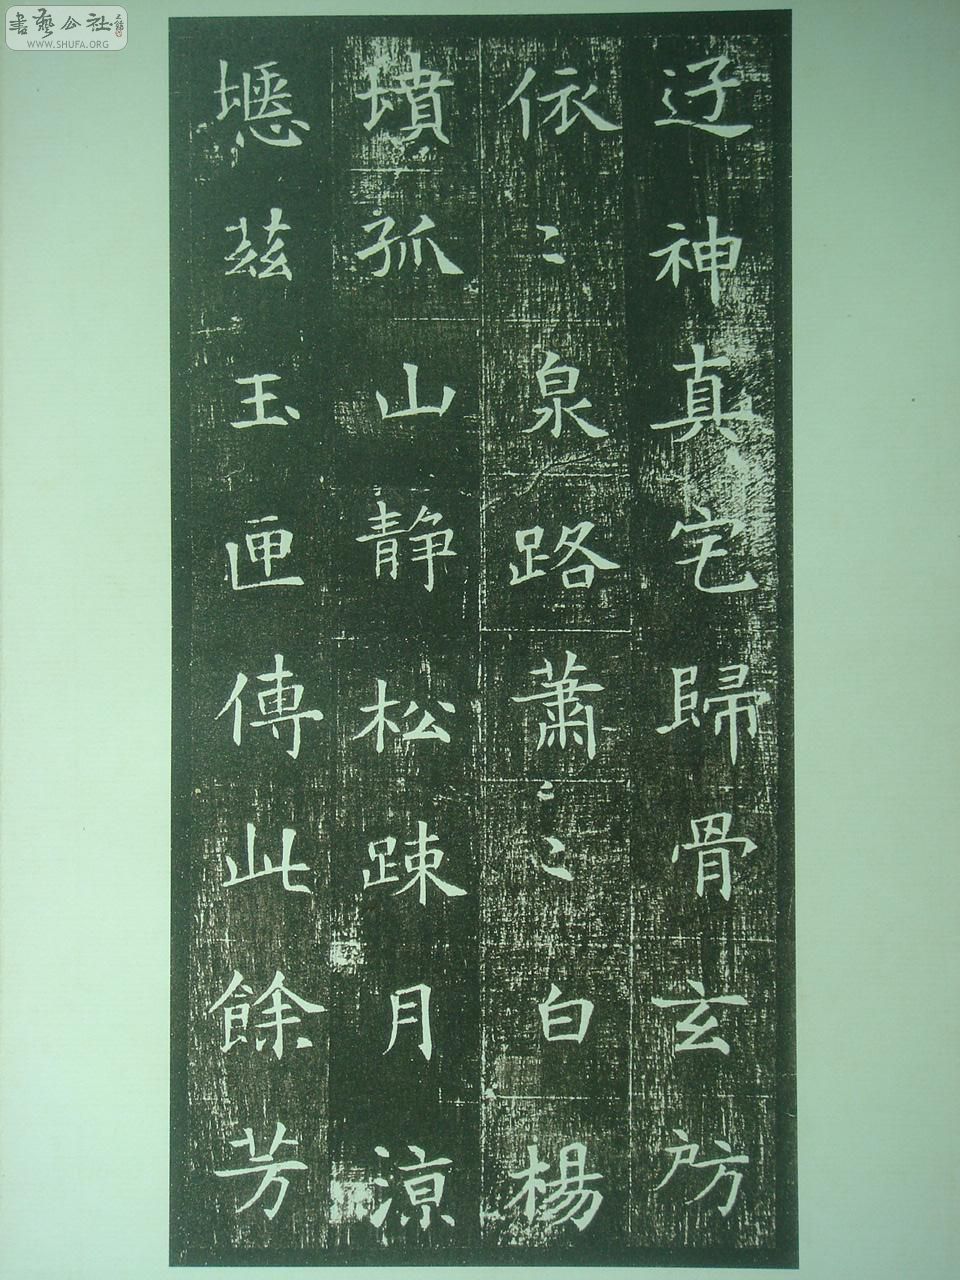 書藝公社
WWW.SHUFA.ORG
迓神真宅歸骨玄房
依〻泉路蕭〻白楊
墳孤山静松踈月涼
兹玉匣傳此餘芳